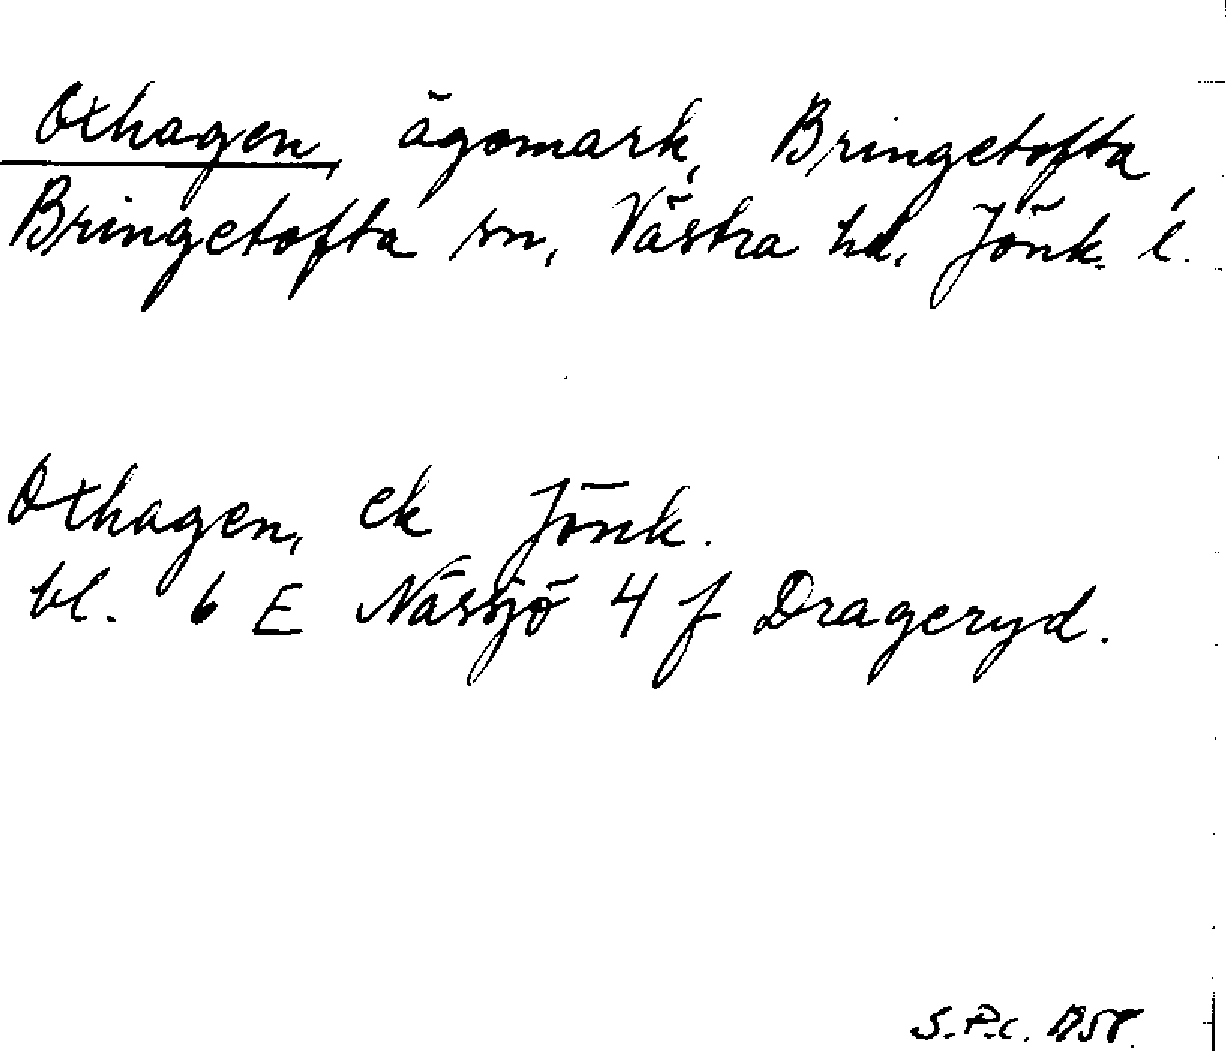 Oxhagen, ägomark, Bringetofta,
Bringetofta sn, Västra hd. Jönk. l.
Oxhagen, ek Jönk.
bl. 6 E Nässjö 4 f Drageryd.
S.P.C.